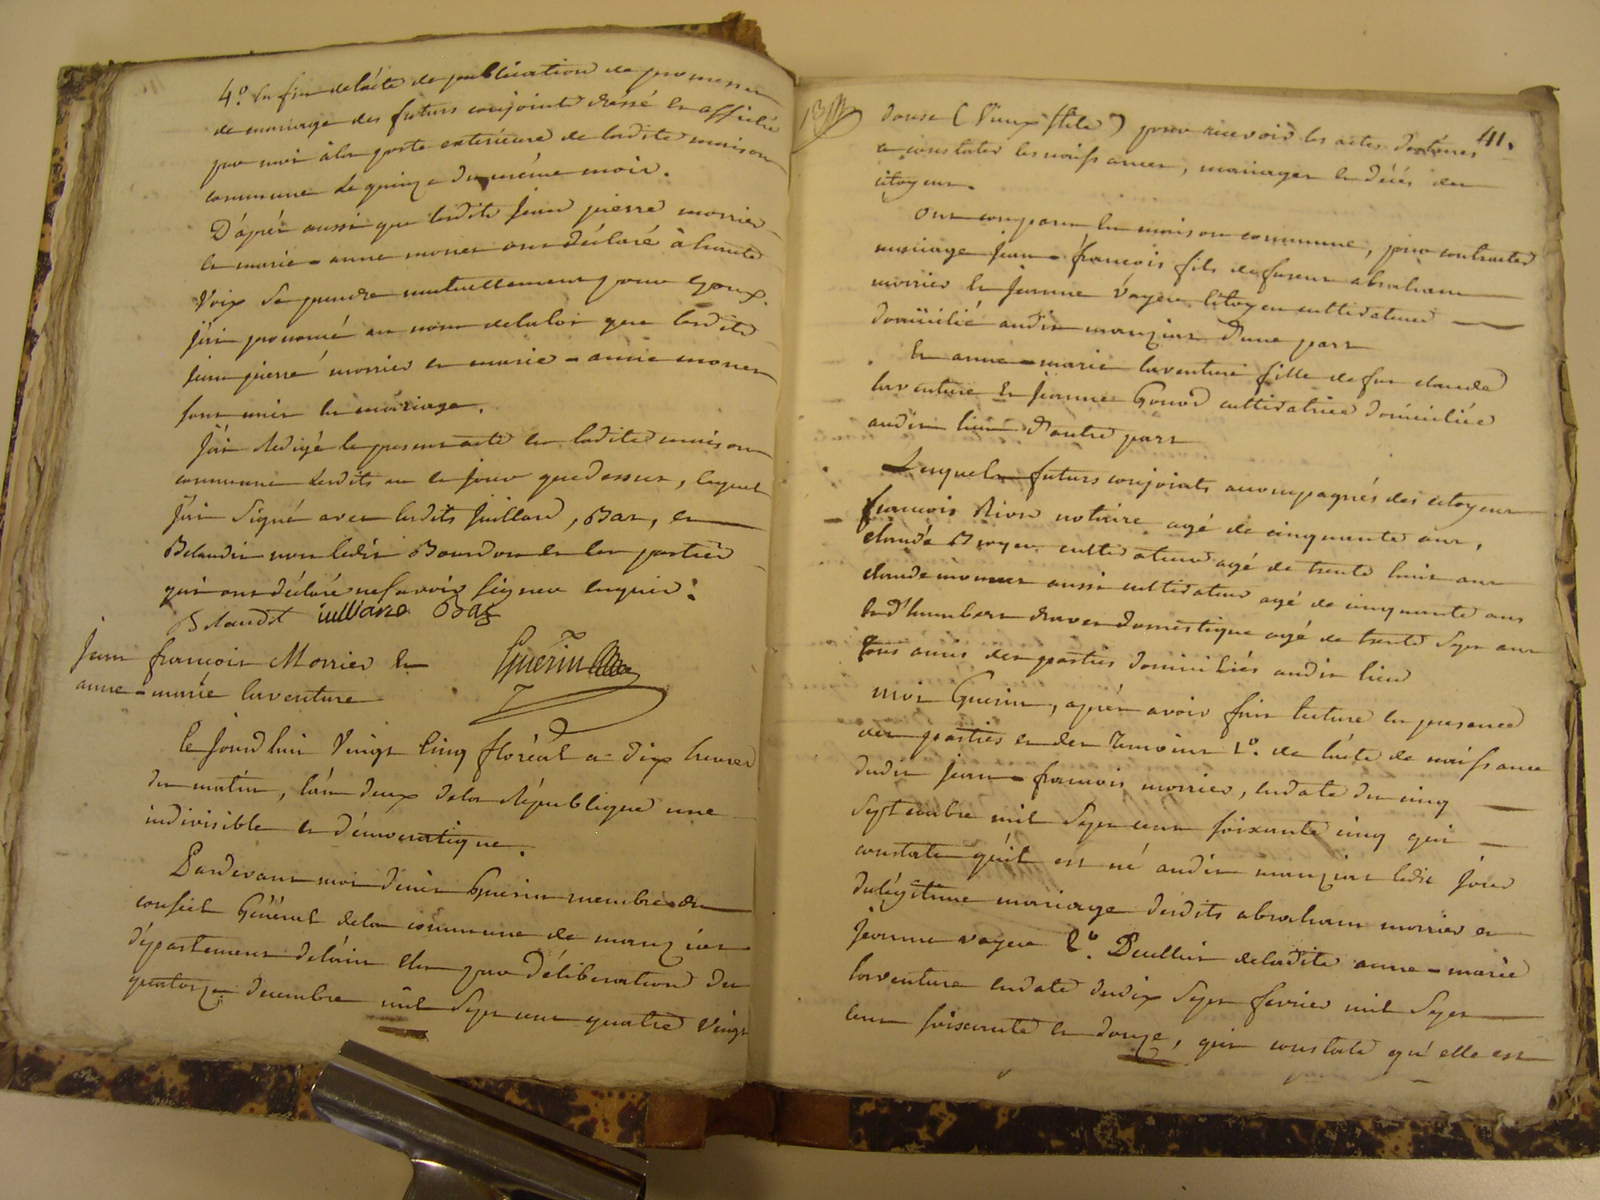 4.° en fin de l'acte de publication de promesses
de mariage des futurs conjoints dressé et affiché
par moi à la porte extérieure de ladite maison
commune le quinze du même mois.
D'après aussi que lesdits jean pierre morrier
et marie-anne monet ont déclaré à haute
voix se prendre mutuellement pour epoux.
J'ai prononcé au nom de la loi que lesdits
jean pierre morrier et marie-anne monet
sont unis en mariage.
J'ai rédigé le present acte en ladite maison
commune lesdits an et jour que dessus, lequel
j'ai signé avec lesdits juillard, Bas, et
Belaudit non ledit Bourdon et les parties
qui ont déclaré ne savoir signer enquis.
Belaudit Bas
Guerin
jean françois Morrier et
anne-marie laventure
Ce jourd'hui vingt cinq floréal a dix heures
du matin, l'an deux de la République une
indivisible et démocratique.
Pardevant moi denis Guerin membre du
conseil Général de la commune de manziat
département de l'ain elu par déliberation du
quatorze decembre mil sept cent quatre vingt
41.
douse (vieux stile) pour recevoir les actes destinés
a constater les naissances, mariages et décés des
citoyens.
Ont comparu en maison commune, pour contracter
mariage jean-françois fils de feu abraham
morrier et jeanne voyer citoyen cultivateur
domicilié audit manziat d'une part
Et anne-marie laventure fille de feu claude
laventure et jeanne Gonod cultivatrice domiciliée
audit lieu d'autre part
Lesquels futurs conjoints accompagnés des citoyens
françois notaire agé de cinquante ans,
claude Broyer cultivateur agé de trente huit ans
claude monet aussi cultivateur agé de cinquante ans
et d'humbert domestique agé de trente sept ans
tous amis des parties domiciliés audit lieu
moi Guerin, après avoir fait lecture en presence
des parties et des temoins 1°. de l'acte de naissance
dudit jean-françois morrier, en date du cinq
septembre mil sept cent soixante cinq qui
constate qu'il est né audit manziat ledit jour
du légitime mariage desdits abraham morrier et
jeanne voyer 2°. de ladite anne-marie
laventure en date du dix sept fevrier mil sept
cent soixante et douze, qui constate qu'elle est